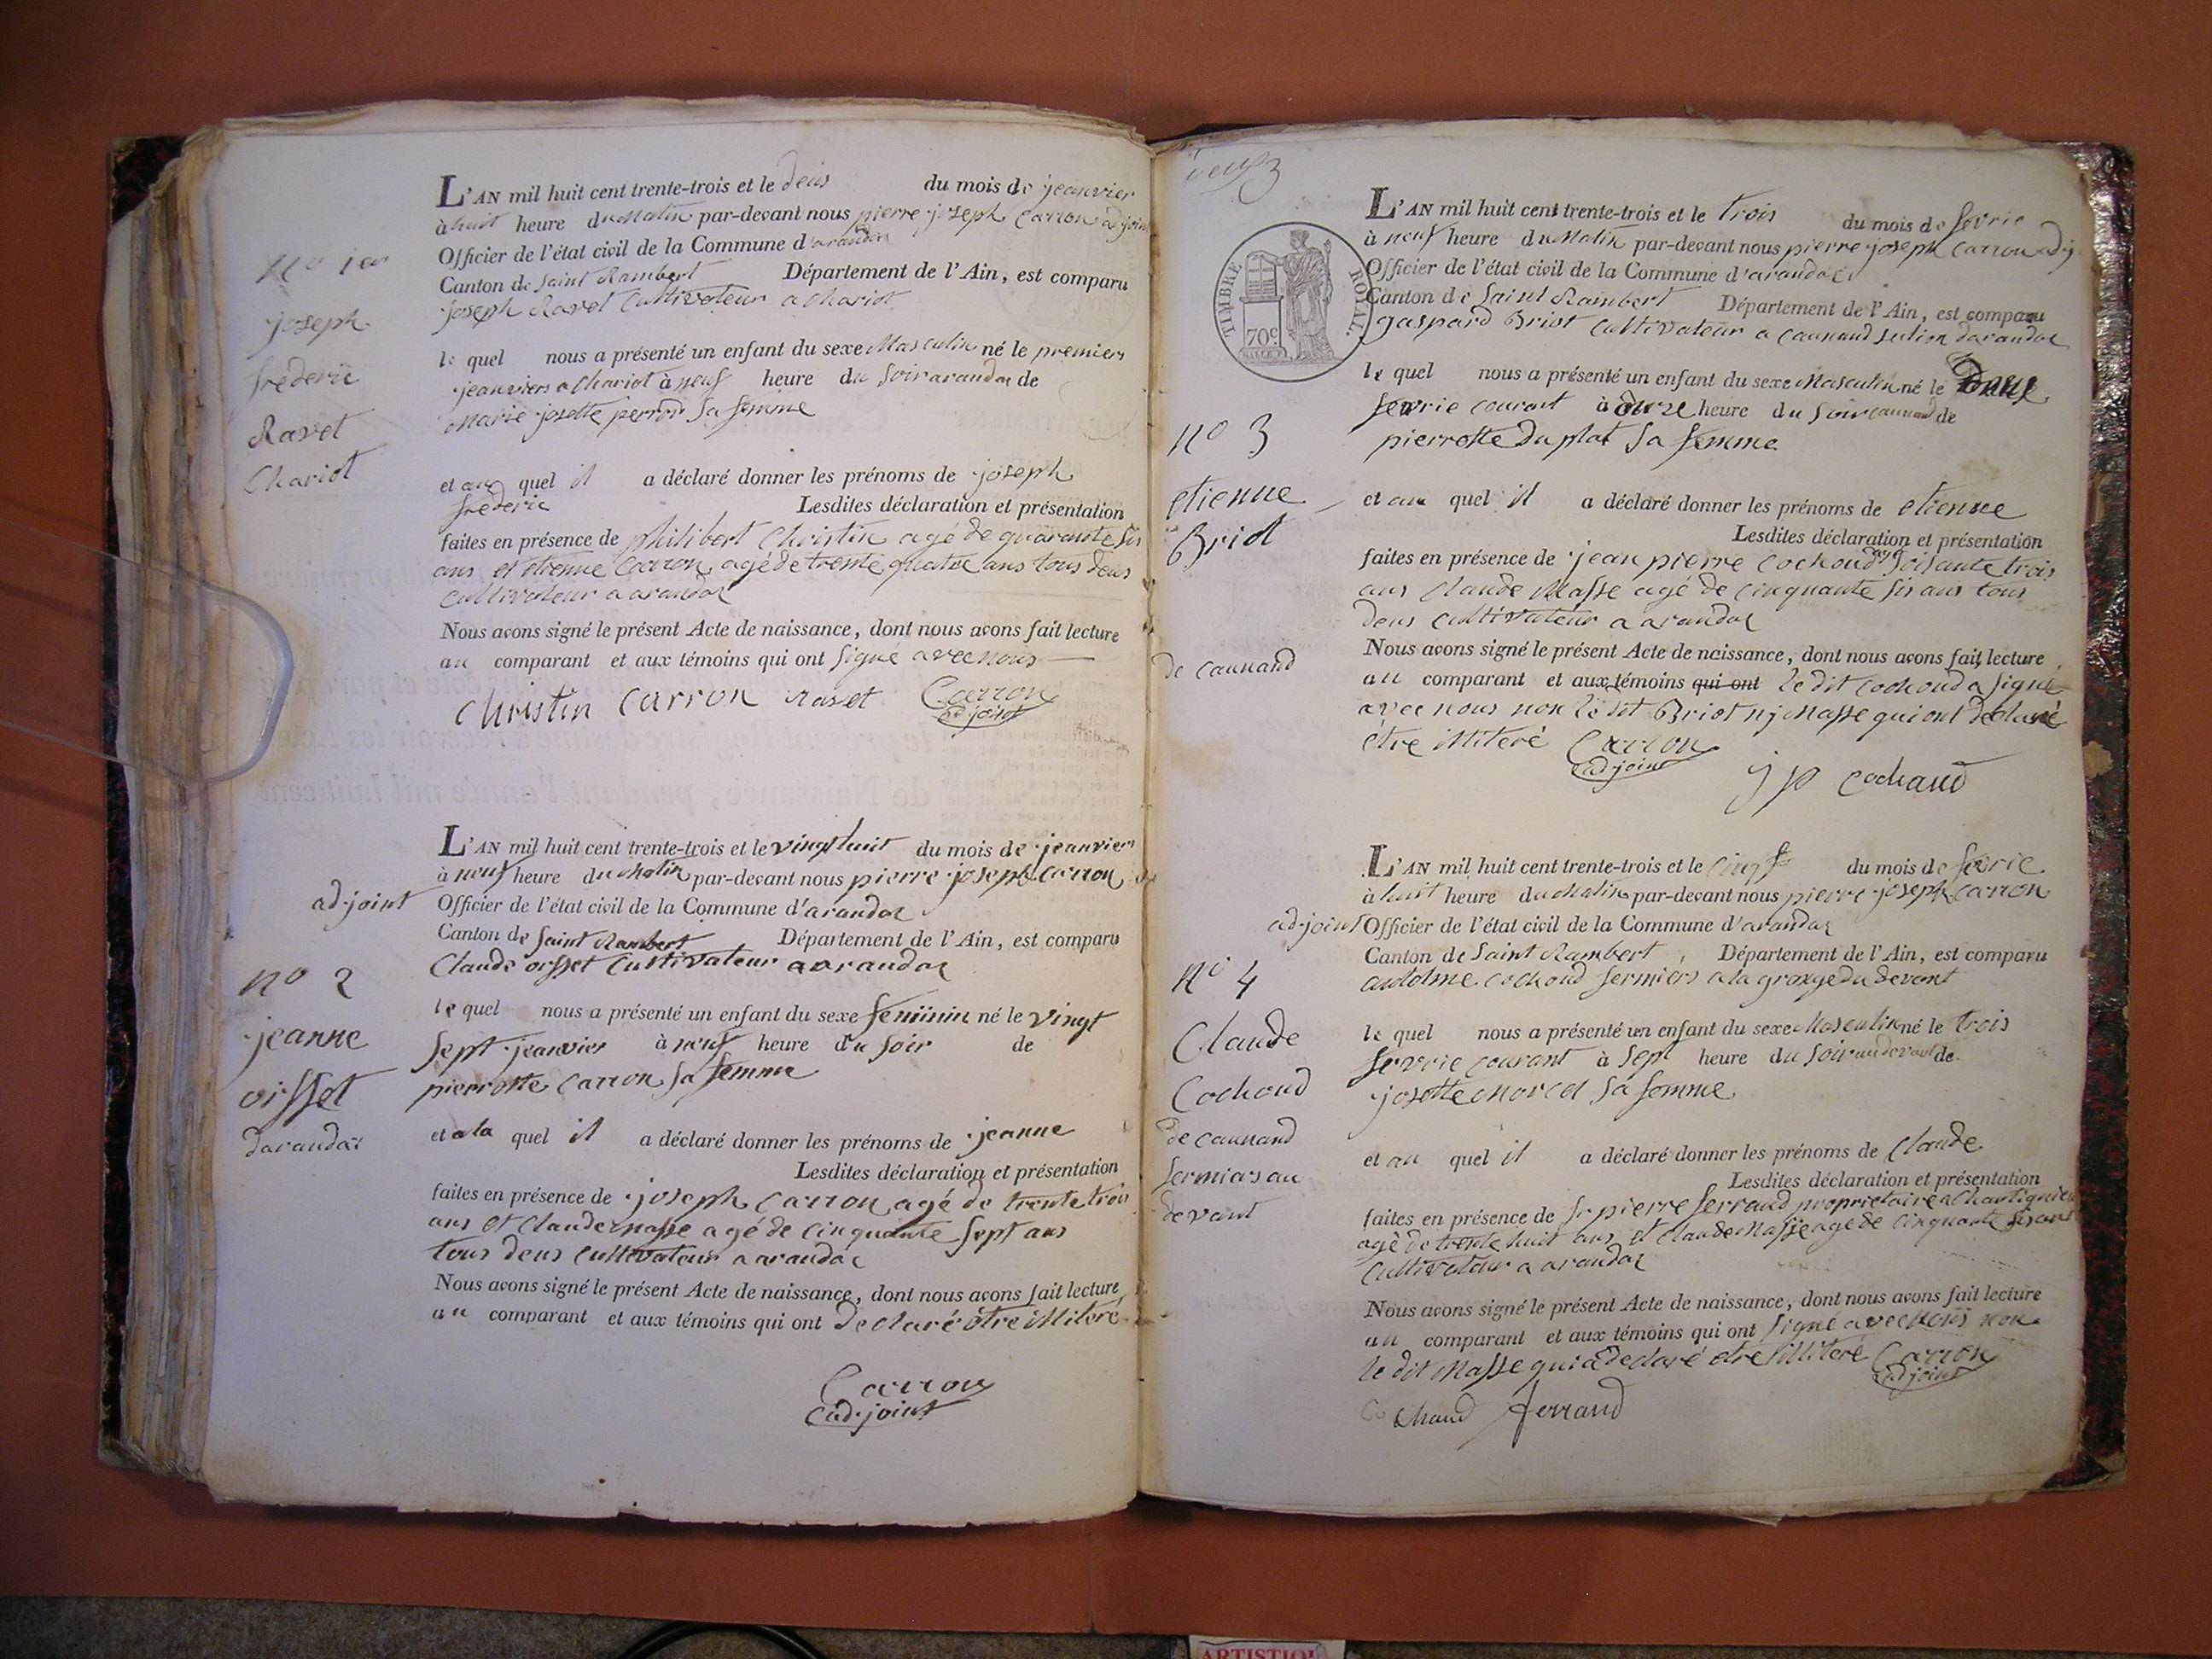 No 1er
joseph
frederic
Ravet
Chariot
L'AN mil huit cent trente-trois et le deus du mois de jeanvier
à huit heure du Matin par-devant nous pierre joseph Carron adjoint
Officier de l'état civil de la Commune d'arandas
Canton de Saint Rambert Département de l'Ain, est comparu
joseph Ravet Cultivateur a Chariot
le quel nous a présenté un enfant du sexe Masculin né le premiers
jeanviers a Chariot à neuf heure du Soir arandas de
Marie josette perrod Sa femme
et au quel il a déclaré donner les prénoms de joseph
frederic Lesdites déclaration et présentation
faites en présence de philibert Christin agé de quarante sis
ans et etienne Carron agé de trente quatre ans tous deus
Cultivateur a arandas
Nous avons signé le présent Acte de naissance, dont nous avons fait lecture
au comparant et aux témoins qui ont Signé avec nous
Christin Carron Ravet Carron
adjoint
adjoint
No 2
jeanne
oisset
darandas
L'AN mil huit cent trente-trois et le vingt huit du mois de jeanviers
à neuf heure du Matin par-devant nous pierre joseph Carron
Officier de l'état civil de la Commune d'arandas
Canton de Saint Rambert Département de l'Ain, est comparu
Claude oisset Cultivateur a arandas
le quel nous a présenté un enfant du sexe feminin né le vingt
Sept jeanvier à neuf heure du Soir de
pierrotte Carron Sa femme
et a la quel il a déclaré donner les prénoms de jeanne
Lesdites déclaration et présentation
faites en présence de joseph Carron agé de trente trois
ans et Claude masse agé de Cinquante Sept ans
tous deus Cultivateur a arandas
Nous avons signé le présent Acte de naissance, dont nous avons fait lecture
au comparant et aux témoins qui ont declaré être illiteré
Carron
adjoint
TIMBRE ROYAL
70c
No 3
etienne
Briot
de Caunand
L'AN mil huit cent trente-trois et le trois du mois de fevrie
à neuf heure du Matin par-devant nous pierre joseph Carron adj
Officier de l'état civil de la Commune d'arandas
Canton de Saint Rambert Département de l'Ain, est comparu
gaspard Briot Cultivateur a Caunand darandas
le quel nous a présenté un enfant du sexe Masculin né le Deus
fevrie courant à onze heure du Soir caunand de
pierrotte Duplat Sa femme
et au quel il a déclaré donner les prénoms de etienne
Lesdites déclaration et présentation
faites en présence de jean pierre Cochoud agé Soisante trois
ans Claude Masse agé de Cinquante sis ans tous
deus Cultivateur a arandas
Nous avons signé le présent Acte de naissance, dont nous avons fait lecture
au comparant et aux témoins qui ont le dit Cochoud a Signé
avec nous non le dit Briot nj Masse qui ont declaré
être illiteré Carron
adjoint
jp Cochaud
adjoint
No 4
Claude
Cochoud
de Caunand
fermiers au
devant
L'AN mil huit cent trente-trois et le Cinq du mois de fevrie
à huit heure du Matin par-devant nous pierre joseph Carron
Officier de l'état civil de la Commune d'arandas
Canton de Saint Rambert Département de l'Ain, est comparu
Cochoud fermiers a la grange du devant
le quel nous a présenté un enfant du sexe Masculin né le trois
fevrie courant à Sept heure du Soir au devant de
josette Morcel Sa femme
et au quel il a déclaré donner les prénoms de Claude
Lesdites déclaration et présentation
faites en présence de Sr pierre ferrand proprietaire a
agé de trente huit ans et Claude Masse agé de Cinquante sis ans
Cultivateur a arandas
Nous avons signé le présent Acte de naissance, dont nous avons fait lecture
au comparant et aux témoins qui ont signé avec nous non
le dit Masse qui a declaré etre illiteré Carron
adjoint
Cochaud ferrand
ARTISTIQU